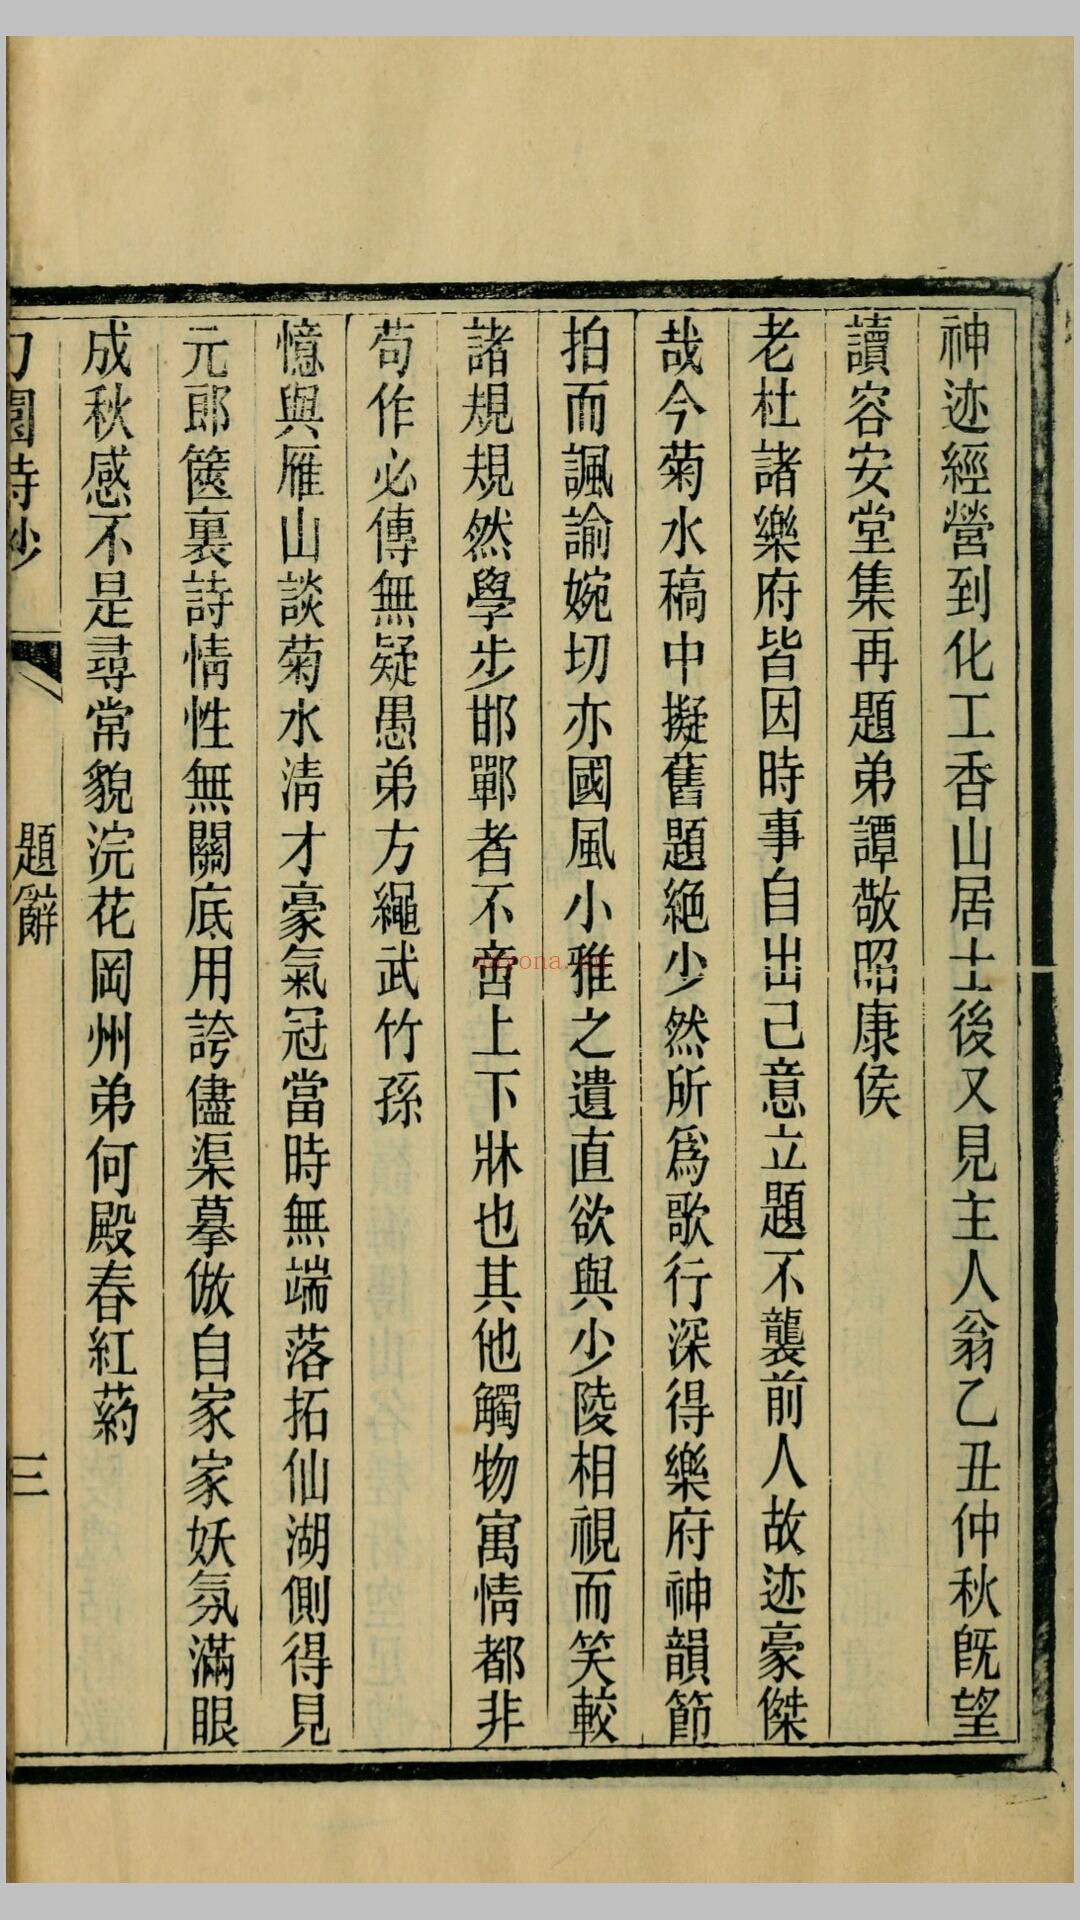 神迹經營到化工香山居士後又見主人翁乙丑仲秋旣望
讀容安堂集再題弟譚敬昭康侯
老杜諸樂府皆因時事自出己意立題不襲前人故迹豪傑
哉今菊水稿中擬舊題絶少然所爲歌行深得樂府神韻節
拍而諷諭婉切亦國風小雅之遺直欲與少陵相視而笑較
諸規規然學步邯鄲者不啻上下牀也其他觸物寓情都非
苟作必傳無疑愚弟方繩武竹孫
憶與雁山談菊水淸才豪氣冠當時無端落拓仙湖側得見
元郎篋裏詩情性無關底用誇儘渠摹倣自家家妖氛滿眼
成秋感不是尋常貌浣花岡州弟何殿春紅葯
園詩鈔
題辭
三